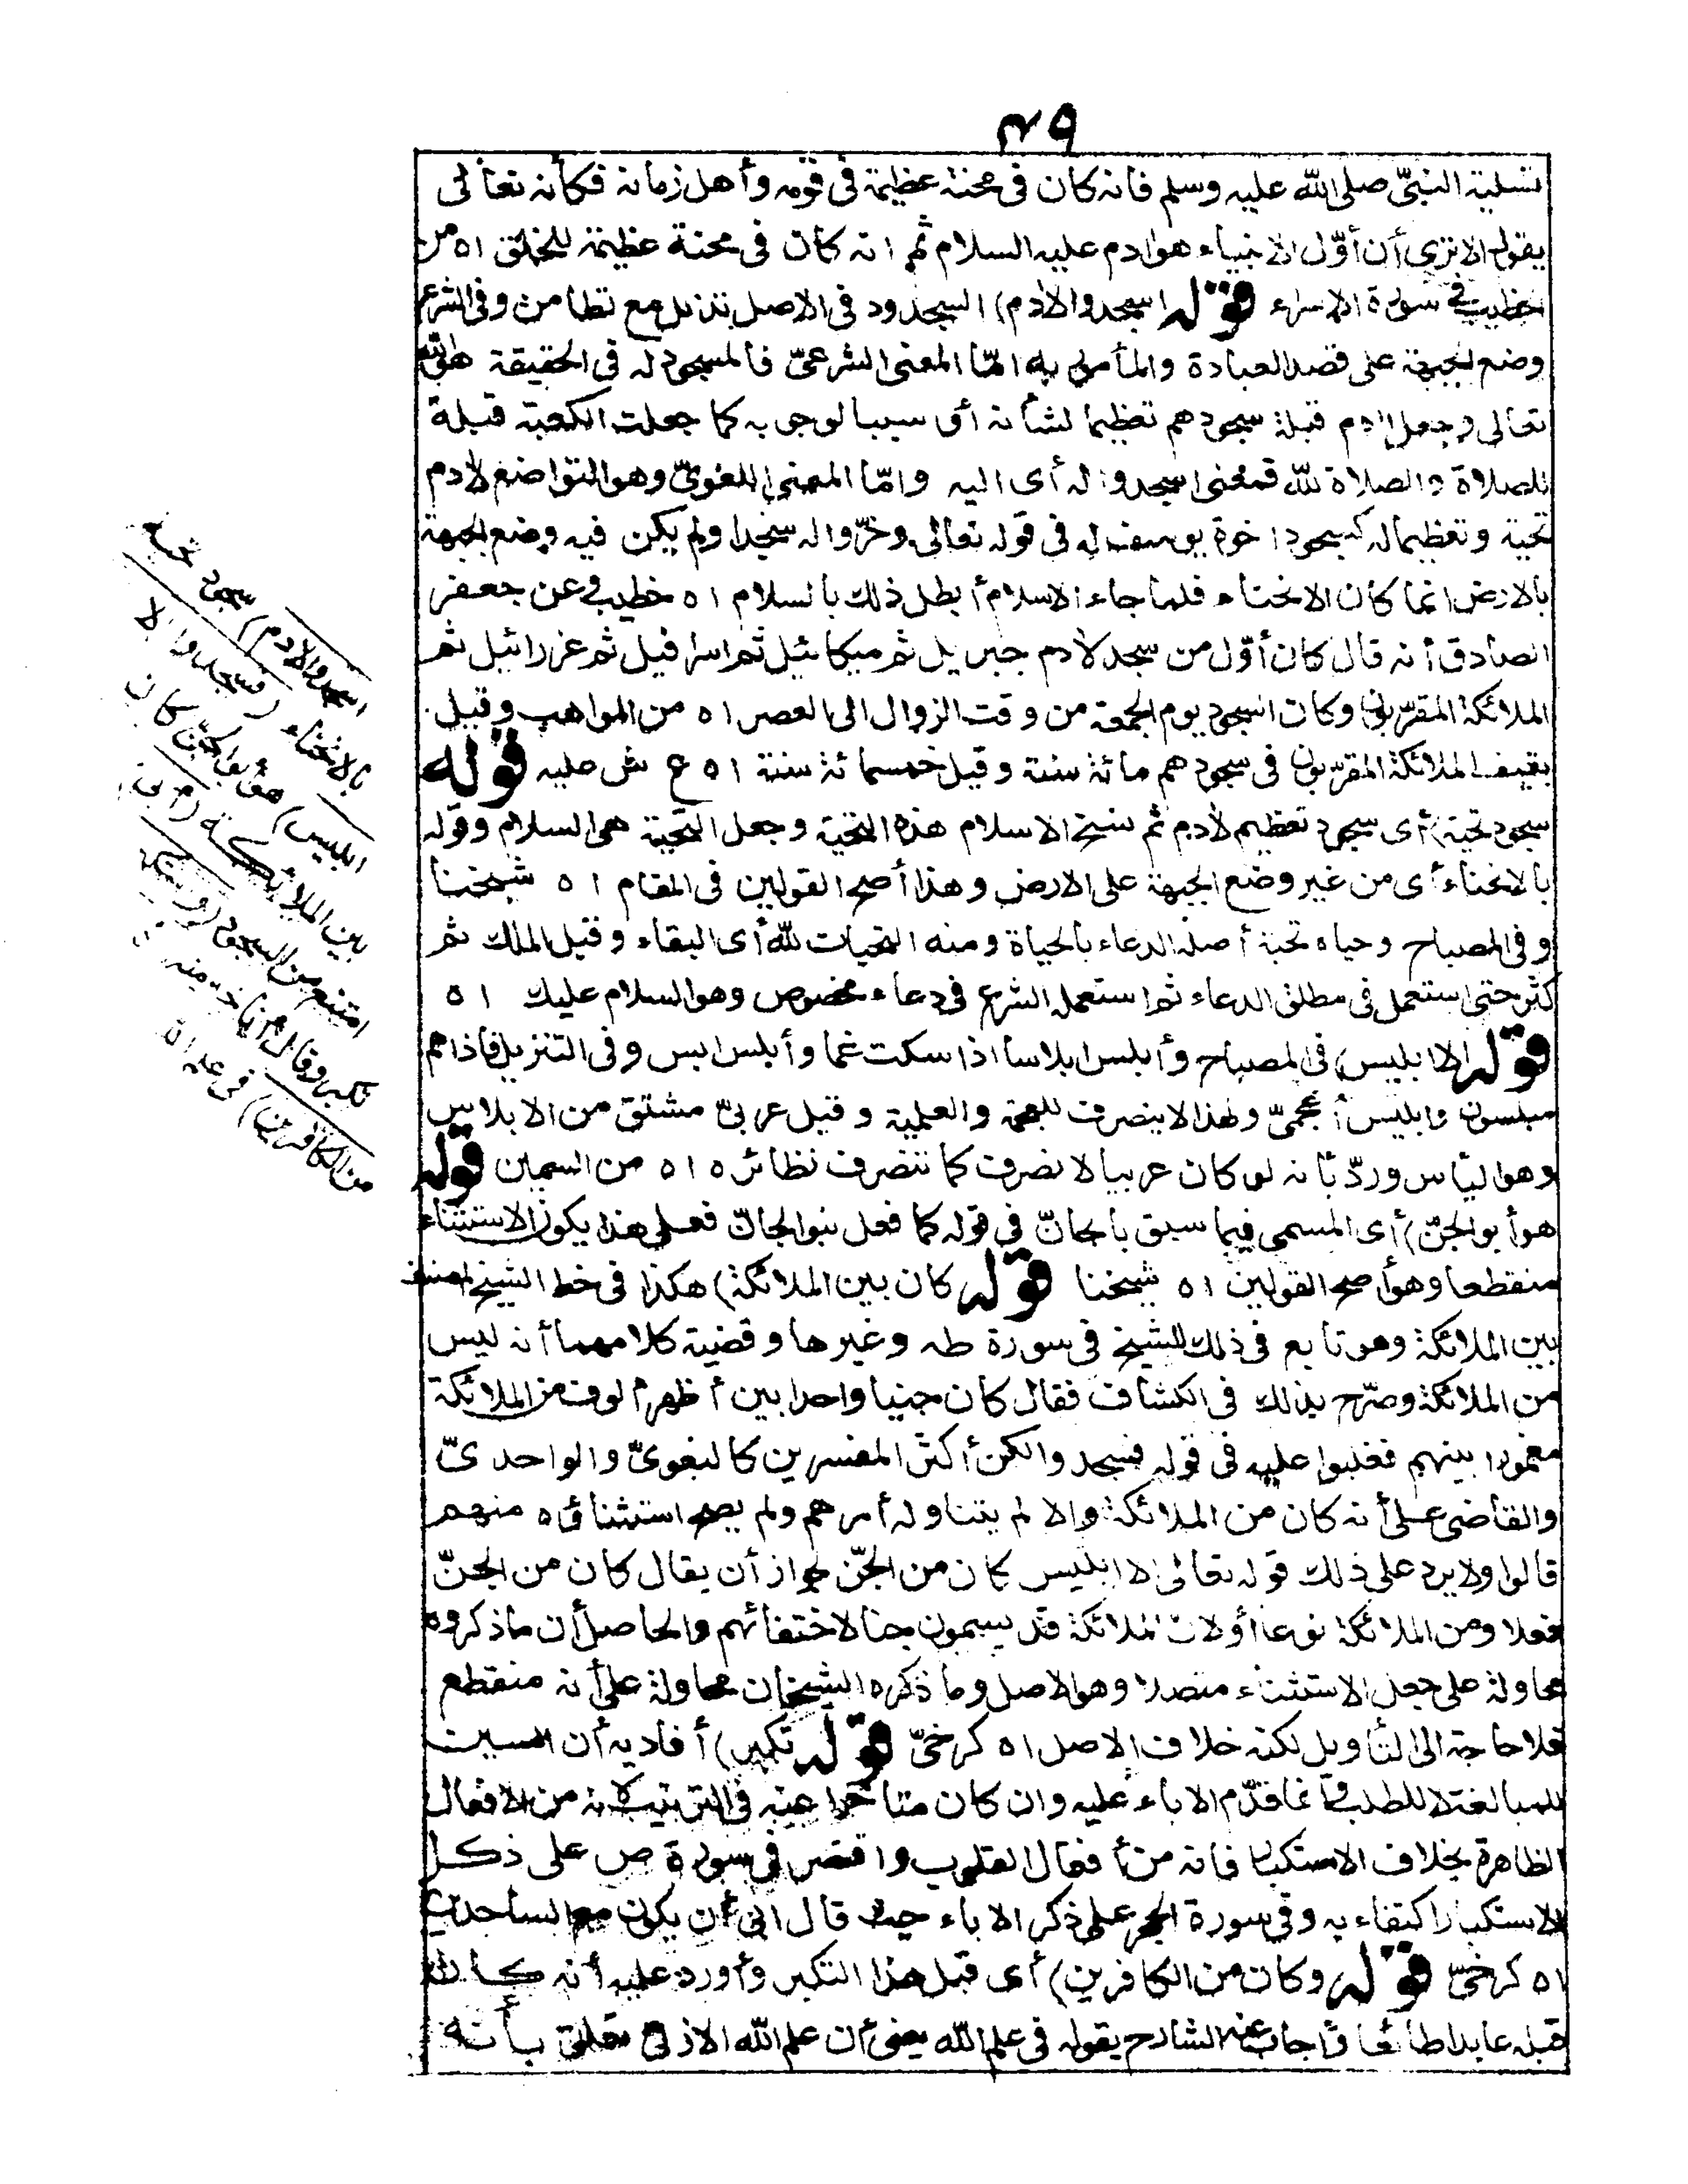 ٤٩
تسلية النبىّ صلى الله عليه وسلم فانه كان فى محنة عظيمة فى قومه وأهل زمانه فكأنه تعالى
يقول الا ترى أن أوّل الانبياء هو ادم عليه السلام ثم انه كان فى محنة عظيمة للخلق اه من
خطيب فى سورة الاسراء قوله اسجدوا لادم) السجود فى الاصل تذلل مع تطامن وفى الشرع
وضع الجبهة على قصد العبادة والمأمور به امّا المعنى الشرعىّ فالمسجود له فى الحقيقة هو الله
تعالى وجعل ادم قبلة سجودهم تعظيما لشأنه أو سببا لوجوبه كما جعلت الكعبة قبلة
للصلاة والصلاة لله فمعنى اسجدوا له أى اليه وامّا المعنى اللغوىّ وهو التواضع لادم
تحية وتعظيما له كسجود اخوة يوسف له فى قوله تعالى وخرّوا له سجدا ولم يكن فيه وضع الجبهة
بالارض انما كان الانحناء فلما جاء الاسلام أبطل ذلك بالسلام اه خطيب وعن جعفر
الصادق أنه قال كان أوّل من سجد لادم جبريل ثم ميكائيل ثم اسرافيل ثم عزرائيل ثم
الملائكة المقرّبون وكان السجود يوم الجمعة من وقت الزوال الى العصر اه من المواهب وقيل
بقيت الملائكة المقرّبون فى سجودهم مائة سنة وقيل خمسمائة سنة اه ع ش عليه قوله
سجود تحية) أى سجود تعظيم لادم ثم نسخ الاسلام هذه التحية وجعل التحية هى السلام وقوله
بالانحناء أى من غير وضع الجبهة على الارض وهذا أصح القولين فى المقام اه شيخنا
وفى المصباح وحياه تحية أصله الدعاء بالحياة ومنه التحيات لله أى البقاء وقيل الملك ثم
كثر حتى استعمل فى مطلق الدعاء ثم استعمله الشرع فى دعاء مخصوص وهو السلام عليك اه
قوله الا ابليس) فى المصباح وأبلس ابلاسا اذا سكت غما وأبلس ايس وفى التنزيل فاذا هم
مبلسون وابليس أعجمىّ ولهذا لا ينصرف للعجمة والعلمية وقيل عربىّ مشتق من الابلاس
وهو الياس وردّ بانه لو كان عربيا لانصرف كما تنصرف نظائره اه من السمين قوله
هو أبو الجنّ) أى المسمى فيما سبق بالجانّ فى قوله كما فعل بنو الجانّ فعلى هذا يكون الاستثناء
منقطعا وهو أصح القولين اه شيخنا قوله كان بين الملائكة) هكذا فى خط الشيخ المصنف
بين الملائكة وهو تابع فى ذلك للشيخ فى سورة طه وغيرها وقضية كلامهما أنه ليس
من الملائكة وصرّح بذلك فى الكشاف فقال كان جنيا واحدا بين أظهر ألوف من الملائكة
مغمورا بينهم فغلبوا عليه فى قوله فسجدوا لكن أكثر المفسرين كالبغوىّ والواحدىّ
والقاضى على أنه كان من الملائكة والا لم يتناوله أمرهم ولم يصح استثناؤه منهم
قالوا ولا يرد على ذلك قوله تعالى الا ابليس كان من الجنّ لجواز أن يقال كان من الجنّ
فعلا ومن الملائكة نوعا أو لان الملائكة قد يسمون جنا لاختفائهم والحاصل أن ما ذكروه
محاولة على جعل الاستثناء متصلا وهو الاصل وما ذكره الشيخان محاولة على أنه منقطع
فلا حاجة الى التأويل لكنه خلاف الاصل اه كرخىّ قوله تكبر) أفاد به أن السين
للمبالغة لا للطلب وانما قدّم الاباء عليه وان كان متأخرا عنه فى الترتيب لانه من الافعال
الظاهرة بخلاف الاستكبار فانه من أفعال القلوب واقتصر فى سورة ص على ذكر
الاستكبار اكتفاء به وفى سورة الحجر على ذكر الاباء حيث قال ابى أن يكون مع الساجدين
اه كرخىّ قوله وكان من الكافرين) أى قبل هذا التكبر وأورد عليه أنه كان
قبله عابدا طائعا وأجاب عنه الشارح بقوله فى علم الله يعنى أن علم الله الازلى تعلق بأنه
اسجدوا لادم) سجود تحية
بالانحناء (فسجدوا الا
ابليس) هو أبو الجنّ كان
بين الملائكة (أبى)
امتنع من السجود (واستكبر)
تكبر وقال أنا خير منه
من الكافرين) فى علم الله